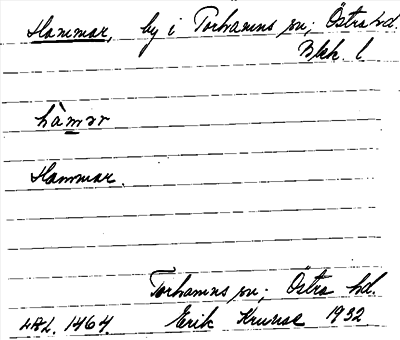 Hammar, by i Torhamns sn; Östra hd.
Blek. l
hàmər
Hammar.
Torhamns sn; Östra hd
1464. Erik 1932